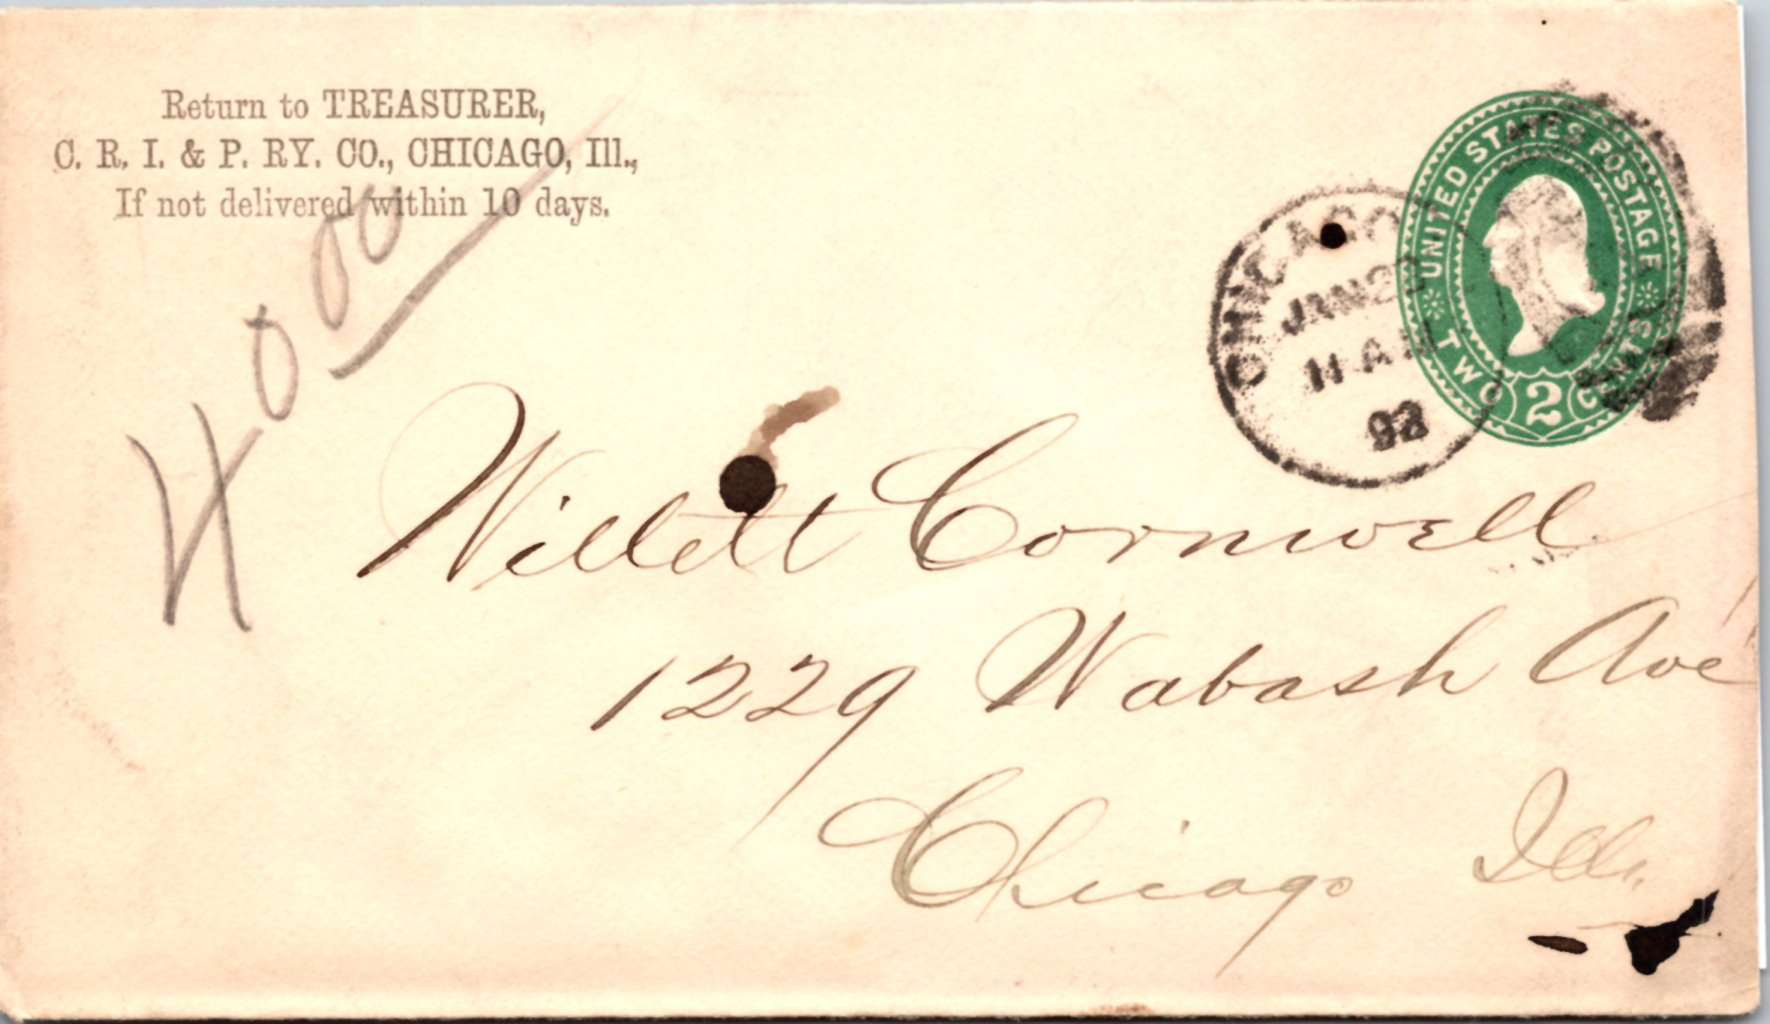 Return to TREASURER,
C. R. I. & P. RY. CO., CHICAGO, Ill.,
If not delivered within 10 days.
UNITED STATES POSTAGE
TWO 2 CENTS
CHICAGO
JAN
11 A
92
40 00
Willett Cornwell
1229 Wabash Ave
Chicago Ills.